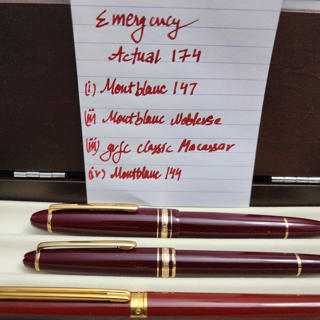 Emergency
Actual 174
(i) Montblanc 147
(ii) Montblanc Noblesse
(iii) gvfc classic Macassar
(iv) Montblanc 144